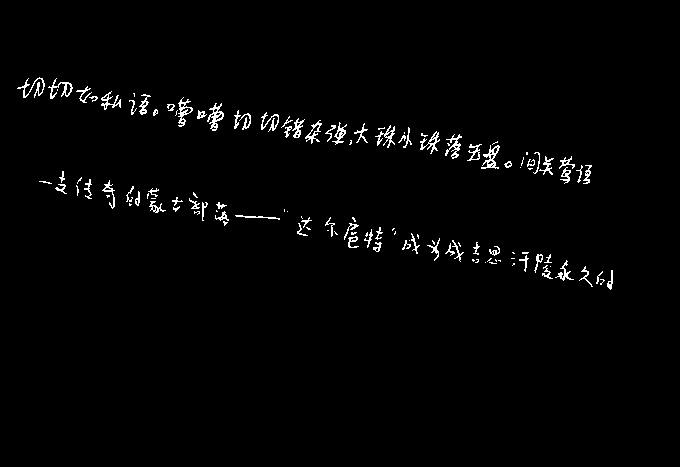 切切如私语。嘈嘈切切错杂弹，大珠小珠落玉盘。间关莺语
一支传奇的蒙古部落——“达尔扈特”成为成吉思汗陵永久的